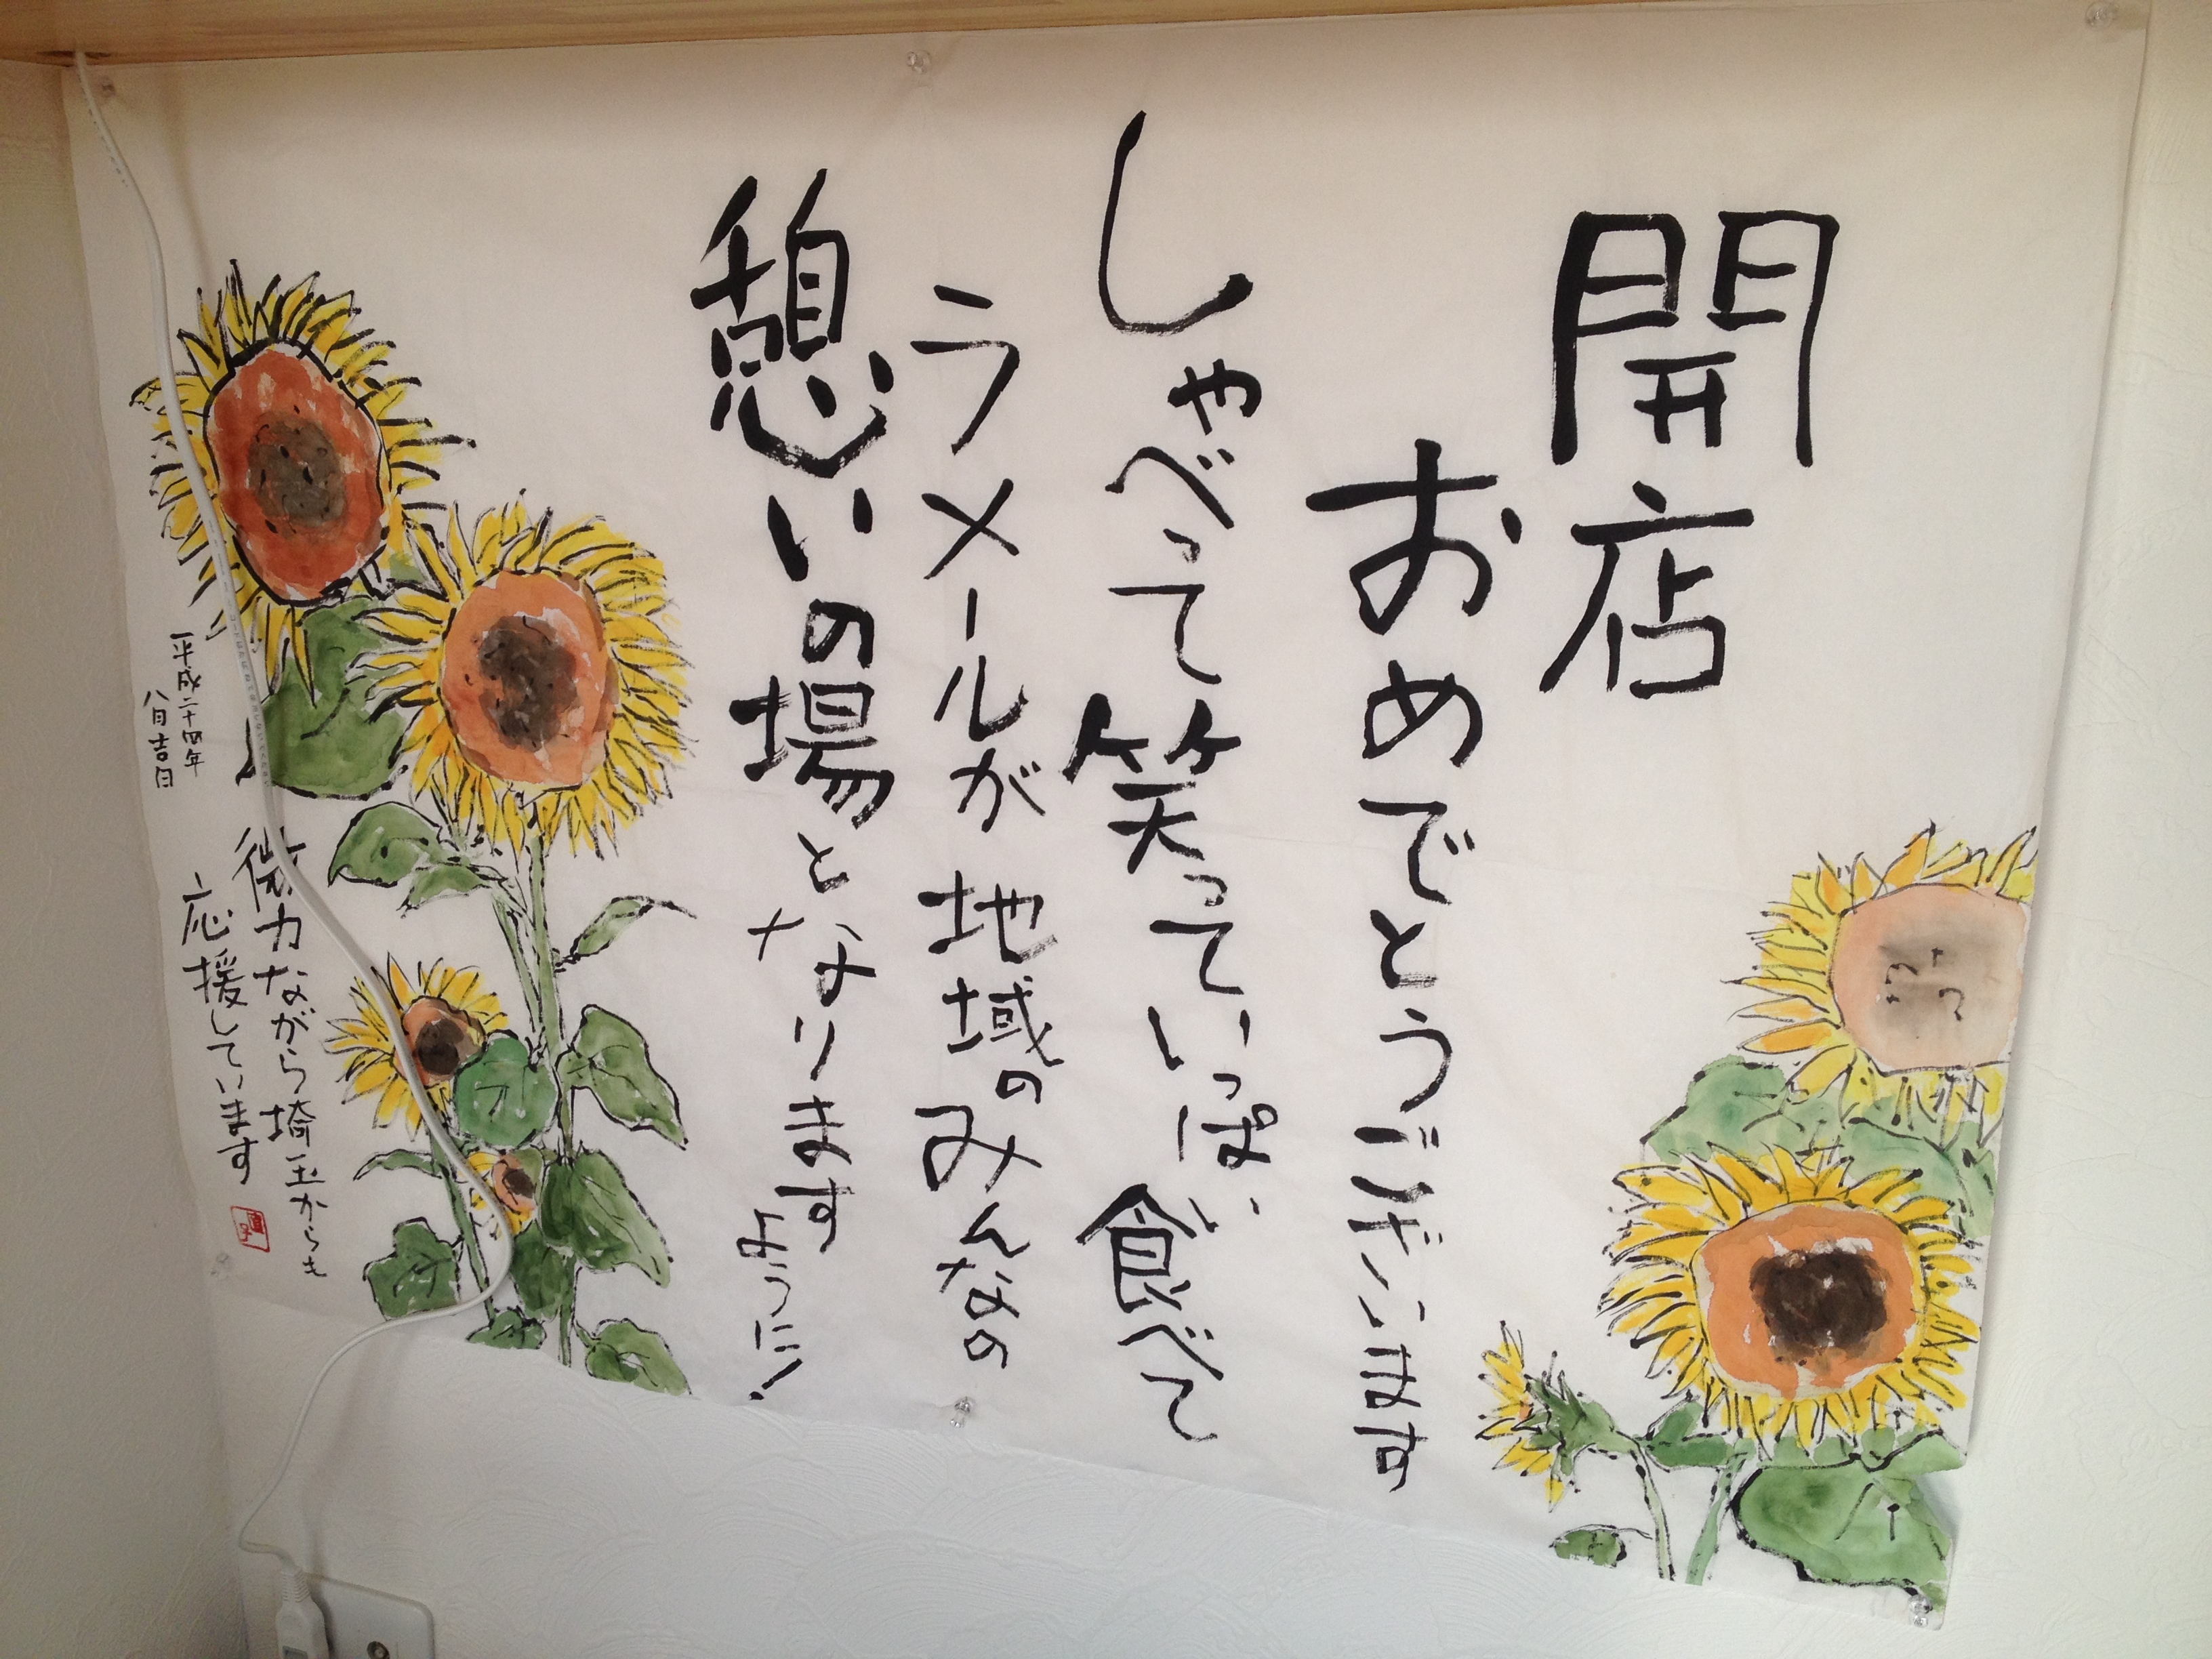 開店
おめでとうございます
しゃべって笑っていっぱい食べて
ラメールが地域のみんなの
憩いの場となります
ように!
微力ながら埼玉からも
応援しています
平成二十四年
八月吉日